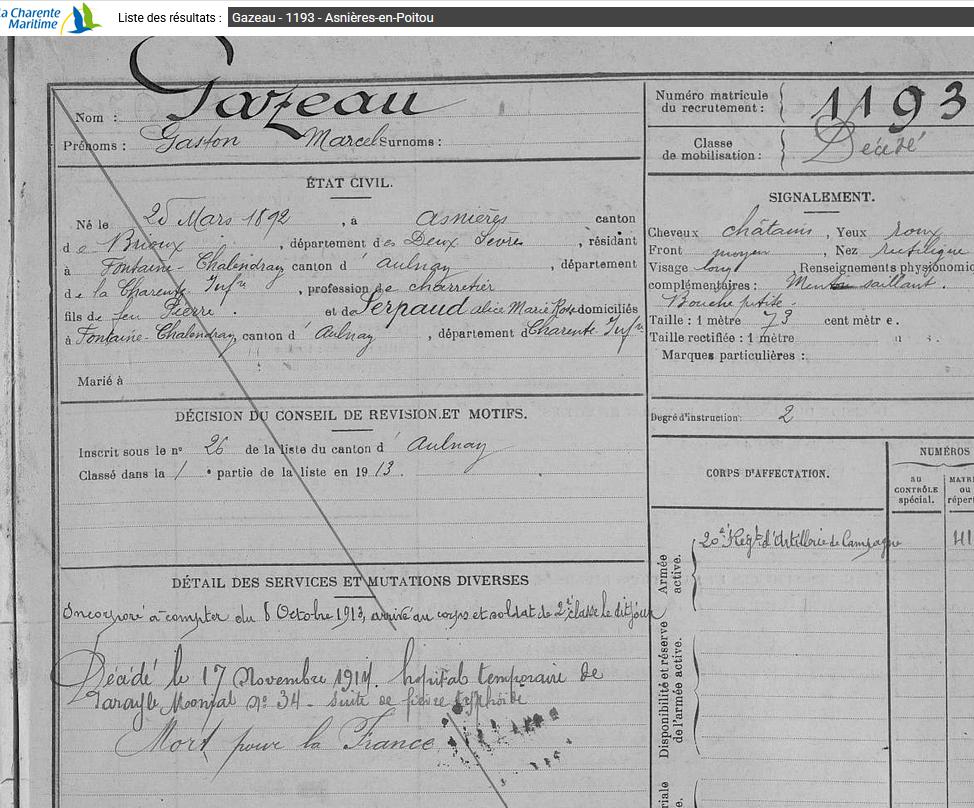 La Charente
Maritime
Liste des résultats : Gazeau - 1193 - Asnières-en-Poitou
Nom : Gazeau
Prénoms : Gaston Marcel Surnoms :
Numéro matricule
du recrutement : 1193
Classe
de mobilisation : Décédé
ÉTAT CIVIL.
Né le 25 Mars 1892, à Asnières canton
de Brioux, département des Deux Sèvres, résidant
à Fontaine-Chalendray canton d'Aulnay, département
de la Charente Infre, profession de charretier
fils de feu Pierre. et de Serpaud Alice Marie Rose domiciliés
à Fontaine-Chalendray, canton d'Aulnay, département d Charente Infre
Marié à
SIGNALEMENT.
Cheveux châtains, Yeux roux
Front moyen, Nez rectiligne
Visage long Renseignements physionomi
complémentaires : Menton saillant.
Bouche petite.
Taille : 1 mètre 73 centimètre.
Taille rectifiée : 1 mètre
Marques particulières :
Degré d'instruction : 2
DÉCISION DU CONSEIL DE REVISION ET MOTIFS.
Inscrit sous le n° 26 de la liste du canton d'Aulnay
Classé dans la 1e partie de la liste en 1913.
CORPS D'AFFECTATION.
NUMÉROS
au
CONTRÔLE
spécial.
MATRI
ou
répert
Armée
active.
20e Régt d'Artillerie de Campagne
Disponibilité et réserve
de l'armée active.
riale
e.
DÉTAIL DES SERVICES ET MUTATIONS DIVERSES
Incorporé à compter du 8 Octobre 1913, arrivé au corps et soldat de 2e classe le dit jour
Décédé le 17 Novembre 1914. hôpital temporaire de
n° 34 - suite de fièvre typhoïde
Mort pour la France